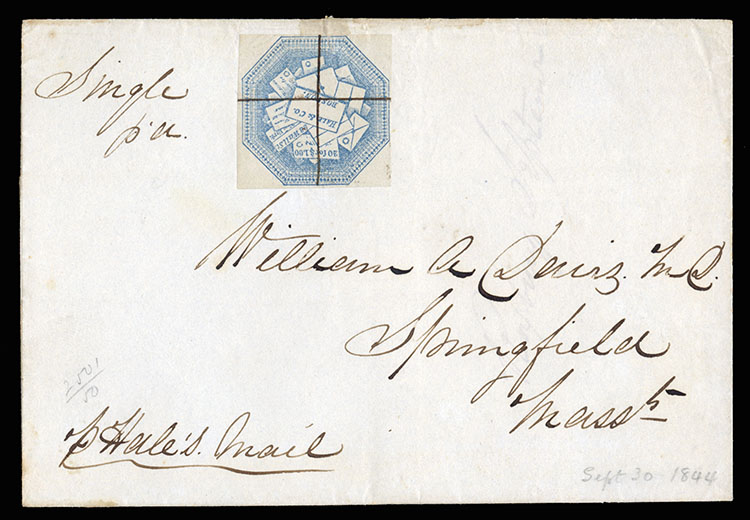 Single
pd.
HALE & CO.
BOSTON.
20 for $1.00
William A Davis. M D.
Springfield
Masss
2501
50
p Hale's. Mail
Sept 30 1844